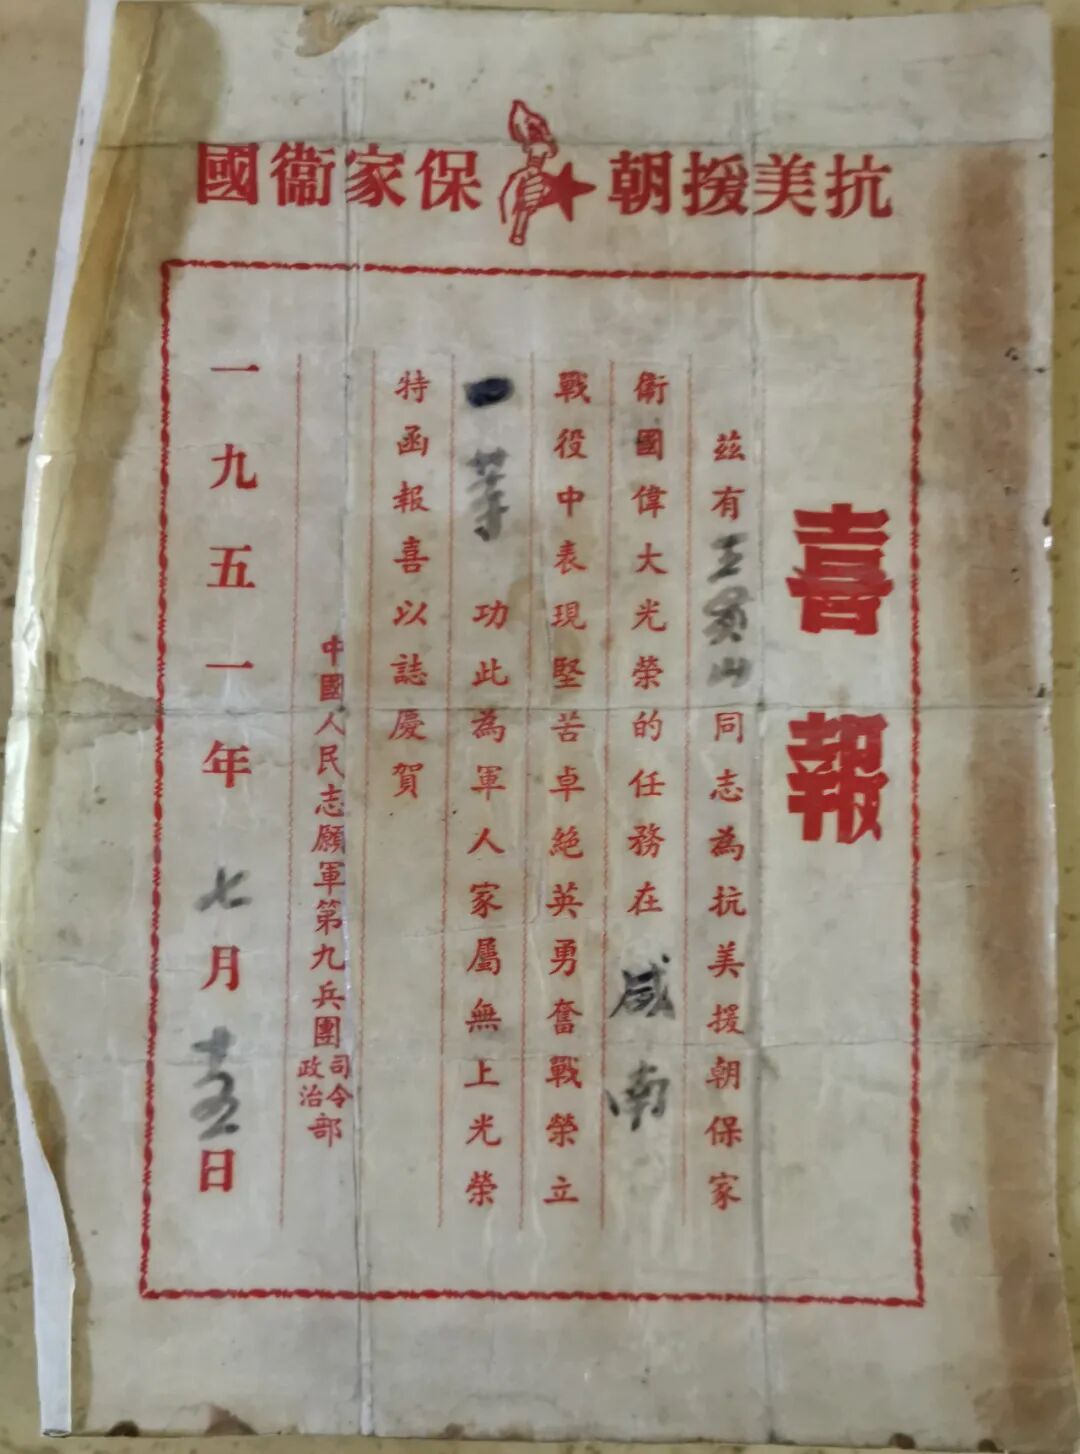 抗美援朝 保家衞國
喜報
茲有王貴山同志為抗美援朝保家
衞國偉大光榮的任務在咸南
戰役中表現堅苦卓絕英勇奮戰榮立
等功此為軍人家屬無上光榮
特函報喜以誌慶賀
中國人民志願軍第九兵團司令政治部
一九五一年七月十五日